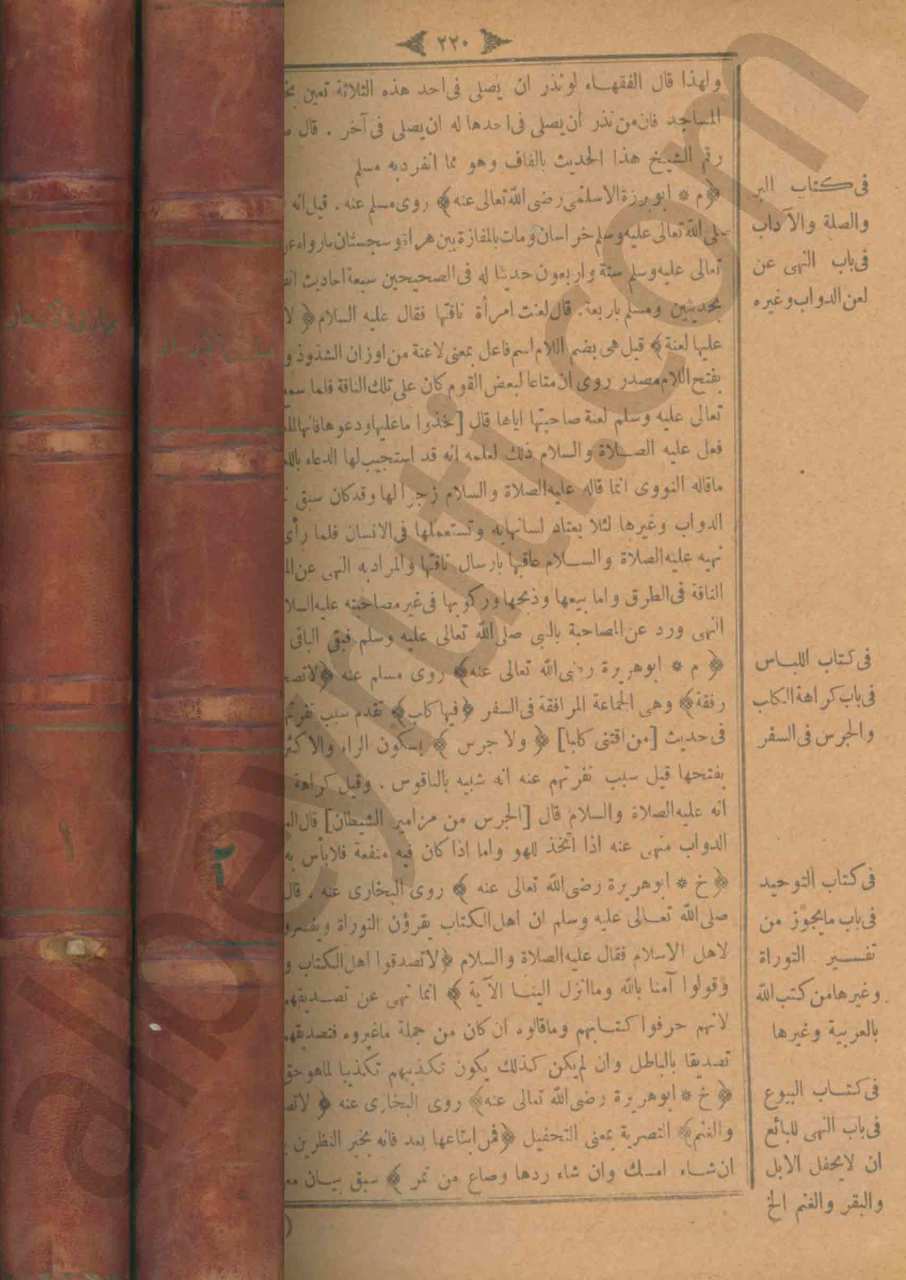 ٢٢٠
ولهذا قال الفقهاء لو نذر ان يصلى فى احد هذه الثلاثة تعين بخ
المساجد فان من نذر ان يصلى فى احدها له ان يصلى فى آخر . قال
رقم الشيخ هذا الحديث بالقاف وهو مما انفرد به مسلم
﴿ م * ابو برزة الاسلمى رضى الله تعالى عنه ﴾ روى مسلم عنه . قيل انه
صلى الله تعالى عليه وسلم خراسان ومات بالمفازة بين هراة وسجستان مارواه عن
تعالى عليه وسلم ستة واربعون حديثا له فى الصحيحين سبعة احاديث انف
بحديثين ومسلم باربعة . قال لعنت امرأة ناقتها فقال عليه السلام ﴿ لا
عليها لعنة ﴾ قيل هى بضم اللام اسم فاعل بمعنى لاعنة من اوزان الشذوذ و
بفتح اللام مصدر روى ان متاعا لبعض القوم كان على تلك الناقة فلما سمع
تعالى عليه وسلم لعنة صاحبتها اياها قال [ خذوا ما عليها ودعوها فانها مل
فعل عليه الصلاة والسلام ذلك لعلمه انه قد استجيب لها الدعاء بالل
ماقاله النووى انما قاله عليه الصلاة والسلام زجرا لها وقد كان سبق
الدواب وغيرها لئلا يعتاد لسانها به وتستعملها فى الانسان فلما رأى
نهيه عليه الصلاة والسلام عاقبها بارسال ناقتها والمراد به النهى عن الم
الناقة فى الطرق واما بيعها وذبحها وركوبها فى غير مصاحبته عليه السلا
النهى ورد عن المصاحبة بالنبى صلى الله تعالى عليه وسلم فبقى الباقى
﴿ م * ابو هريرة رضى الله تعالى عنه ﴾ روى مسلم عنه ﴿ لا تصح
رفقة ﴾ وهى الجماعة المرافقة فى السفر ﴿ فيها كلب ﴾ تقدم سبب نفرته
فى حديث [ من اقتنى كلبا ] ﴿ ولا جرس ﴾ بسكون الراء والاكثر
بفتحها قيل سبب نفرتهم عنه انه شبيه بالناقوس . وقيل كراهة
انه عليه الصلاة والسلام قال [ الجرس من مزامير الشيطان ] قال ال
الدواب منهى عنه اذا اتخذ للهو واما اذا كان فيه منفعة فلا بأس به
﴿ خ * ابو هريرة رضى الله تعالى عنه ﴾ روى البخارى عنه . قال
صلى الله تعالى عليه وسلم ان اهل الكتاب يقرؤن التوراة ويفسرو
لاهل الاسلام فقال عليه الصلاة والسلام ﴿ لا تصدقوا اهل الكتاب و
وقولوا آمنا بالله وما انزل الينا الآية ﴾ انما نهى عن تصديقهم
لانهم حرفوا كتابهم وماقالوه ان كان من جملة ماغيروه فتصديقهم
تصديقا بالباطل وان لم يكن كذلك يكون تكذيبهم تكذيبا لما هو حق
﴿ خ * ابو هريرة رضى الله تعالى عنه ﴾ روى البخارى عنه ﴿ لا تص
والغنم ﴾ التصرية بمعنى التحفيل ﴿ فمن ابتاعها بعد فانه بخير النظرين
ان شاء امسك وان شاء ردها وصاع من تمر ﴾ سبق بيان مع
فى كتاب البر
والصلة والآداب
فى باب النهى عن
لعن الدواب وغيره
فى كتاب اللباس
فى باب كراهة الكلب
والجرس فى السفر
فى كتاب التوحيد
فى باب مايجوز من
تفسير التوراة
وغيرها من كتب الله
بالعربية وغيرها
فى كتاب البيوع
فى باب النهى للبائع
ان لايحفل الابل
والبقر والغنم الخ
١
٢